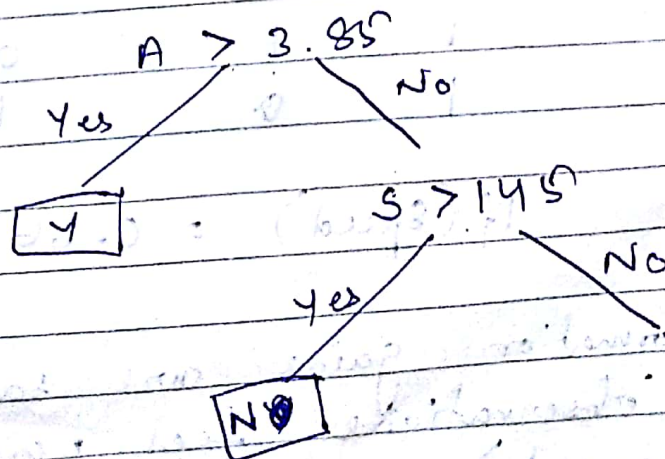 A > 3.85
Yes No
Y
S > 145
Yes No
N